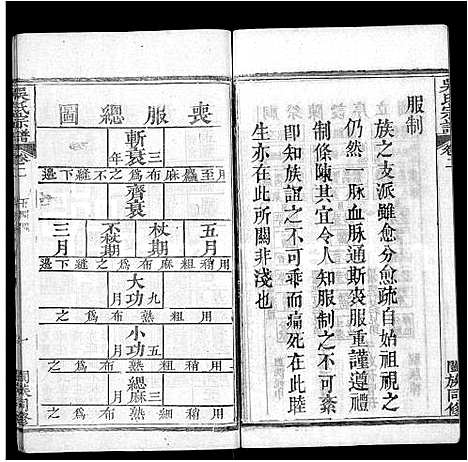 吳氏宗譜
卷二
服制
族之支派雖愈分愈疏自始祖視之
仍然一脉血脉通斯喪服重謹遵禮
制條陳其宜令人知服制之不可紊
即知族誼之不可乘而痛死在此睦
生亦在此所關非淺也
闔族同修
吳氏宗譜
卷二
喪服總圖
斬衰三年
用至麤麻布為之不縫下邊
齊衰
五月
杖期
不杖期
三月
用稍麤布為之縫下邊
大功九月
用粗熟布為之
小功五月
用稍粗熟布為之
緦麻三月
用稍熟布為之
闔族同修